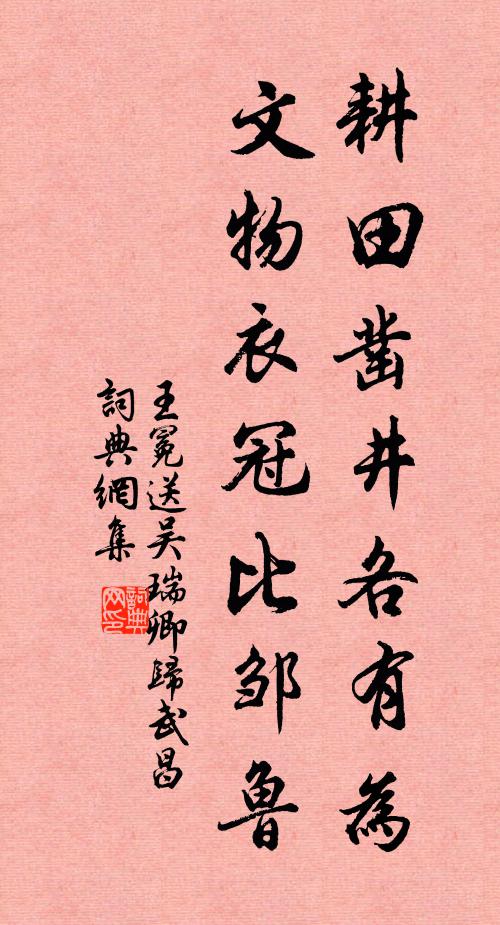 耕田凿井各有為
文物衣冠比邹魯
王冕送吴瑞卿歸武昌
詞典網集
詞典网印